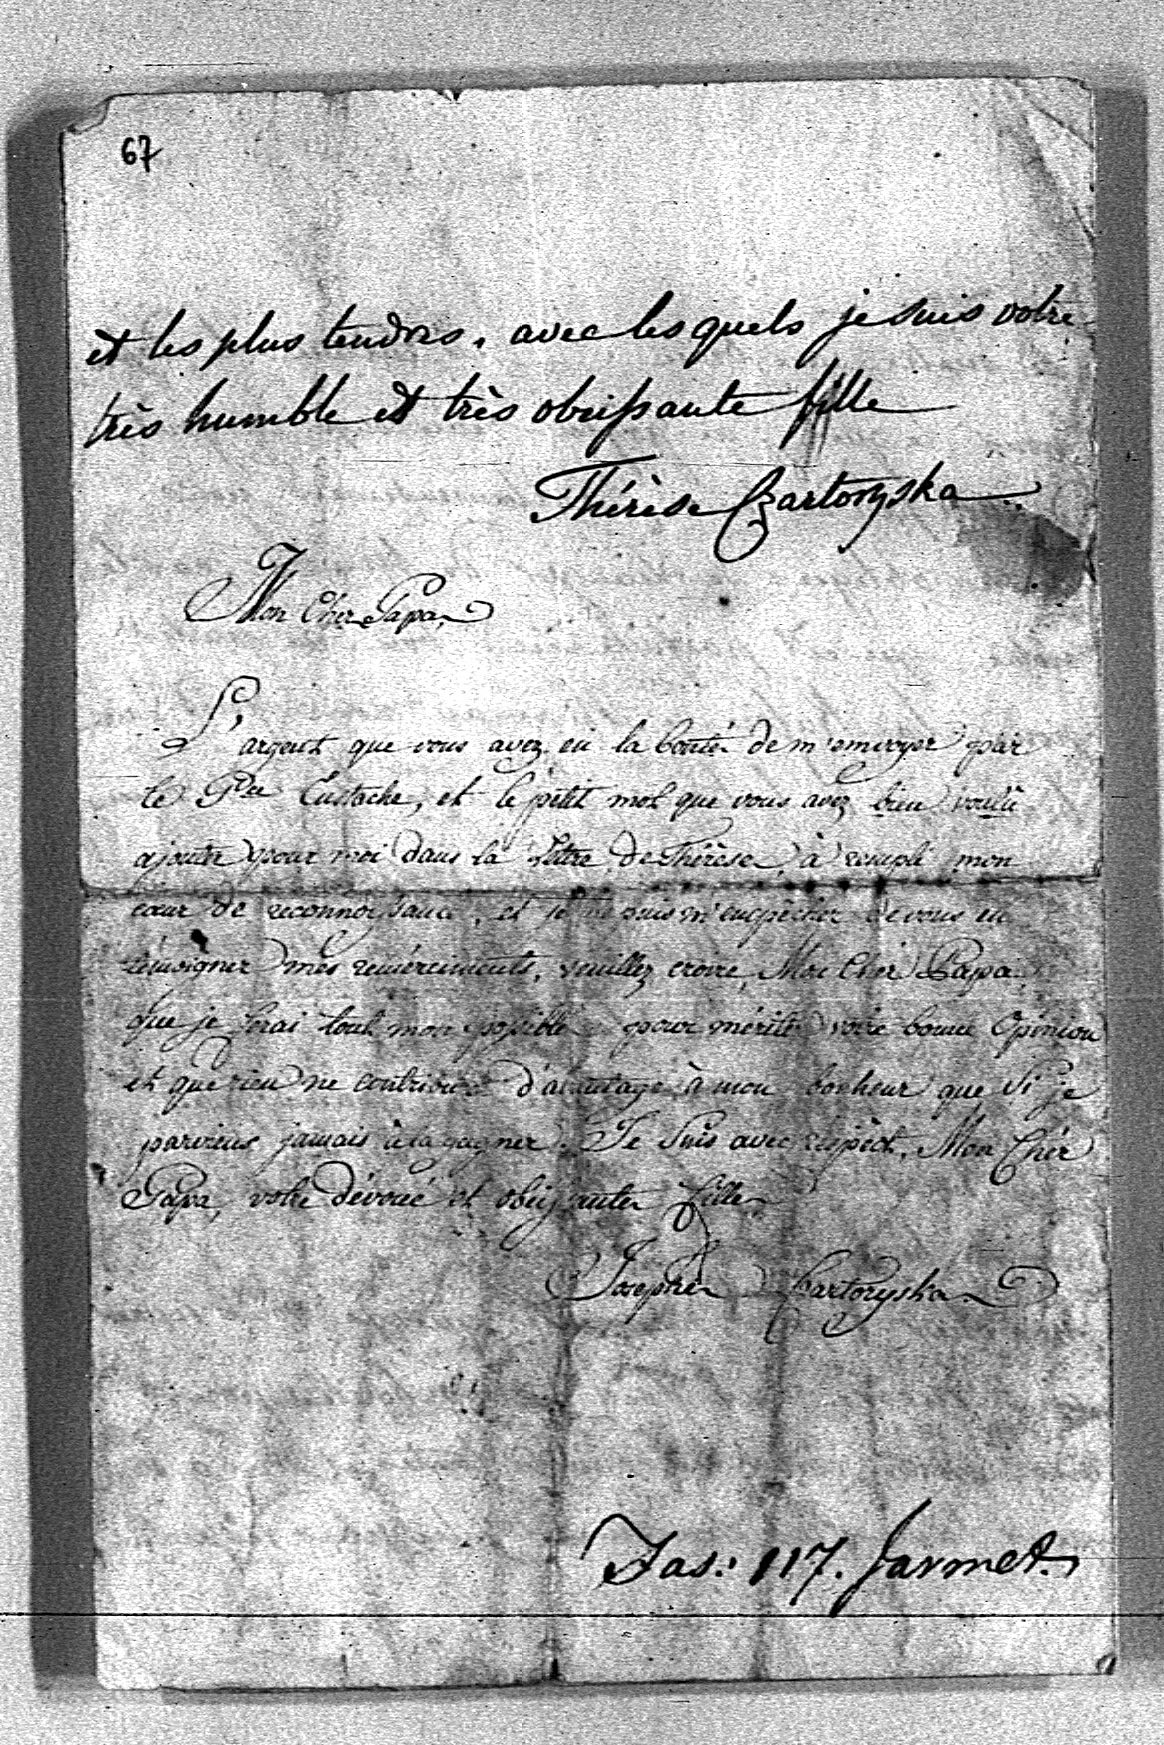 67
et les plus tendres. avec lesquels je suis votre
très humble et très obeissante fille
Thérèse Czartoryska
Mon Cher Papa,
L'argent que vous avez eù la bonté de m'envoyer par
le Eustache, et le petit mot que vous avez bien voulù
ajouter pour moi dans la letre de Thérèse, à rempli mon
cœur de reconnoissance, et je ne puis m'empêcher de vous en
témoigner mes remérciments, veuillez croire, Mon Cher Papa,
que je ferai tout mon possible pour mériter votre bonne Opinion
et que rien ne contribue d'avantage à mon bonheur que Si je
parviens jamais à la gagner. Je Suis avec respèct, Mon Chér
Papa, votre dévoué et obeissante fille
Josephe Czartoryska
Fas: 117.